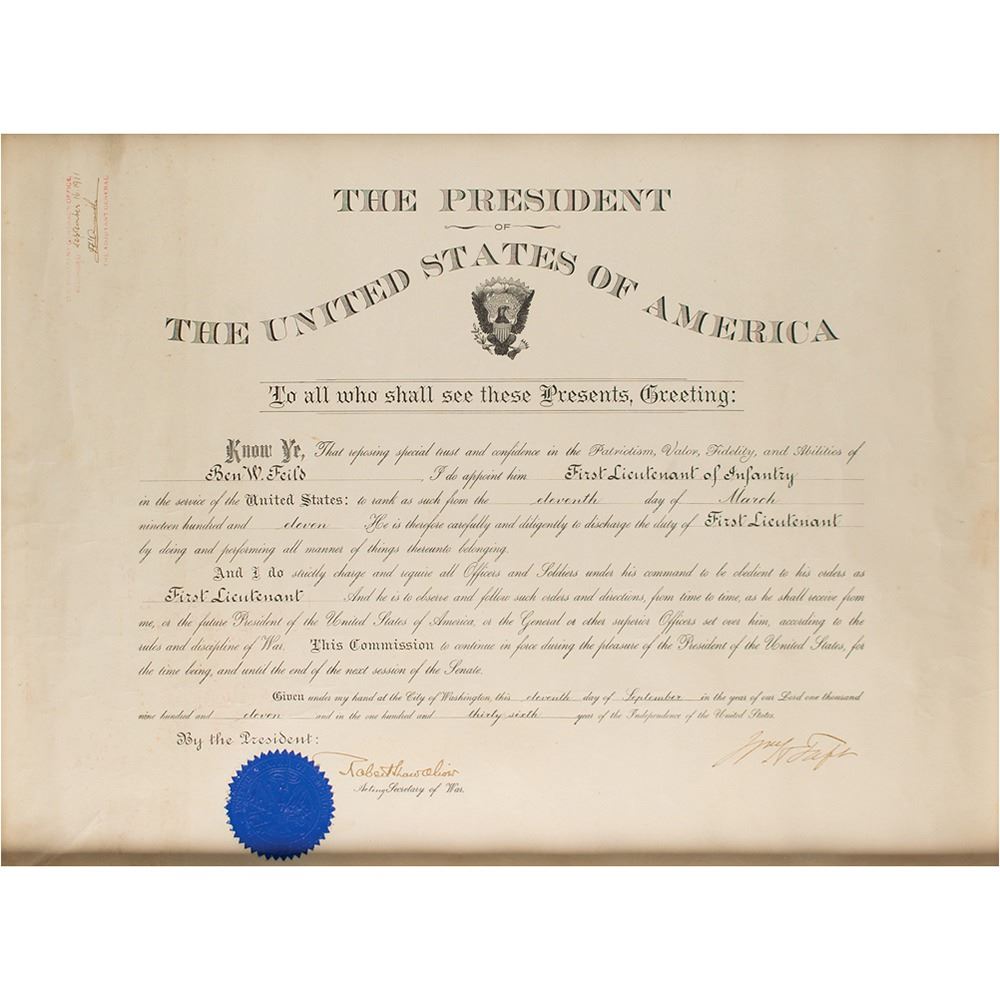 THE PRESIDENT
OF
THE UNITED STATES OF AMERICA
To all who shall see these Presents, Greeting:
Know Ye, That reposing special trust and confidence in the Patriotism, Valor, Fidelity, and Abilities of
Ben W. Feild, I do appoint him First Lieutenant of Infantry
in the service of the United States: to rank as such from the eleventh day of March
nineteen hundred and eleven He is therefore carefully and diligently to discharge the duty of First Lieutenant
by doing and performing all manner of things thereunto belonging.
And I do strictly charge and require all Officers and Soldiers under his command to be obedient to his orders as
First Lieutenant And he is to observe and follow such orders and directions, from time to time, as he shall receive from
me, or the future President of the United States of America, or the General or other superior Officers set over him, according to the
rules and discipline of War. This Commission to continue in force during the pleasure of the President of the United States, for
the time being, and until the end of the next session of the Senate.
Given under my hand at the City of Washington, this eleventh day of September in the year of our Lord one thousand
nine hundred and eleven and in the one hundred and thirty sixth year of the Independence of the United States.
By the President:
Wm H Taft
Robert Shaw Oliver
Acting Secretary of War.
September 16 1911
THE ADJUTANT GENERAL